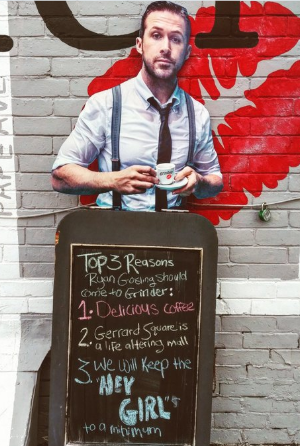 PAPE AVE
TOP 3 Reasons
Ryan Gosling should
come to Grinder:
1. Delicious coffee
2. Gerrard Square is
a life altering mall
3. We will keep the
"HEY
GIRL"s
to a minimum